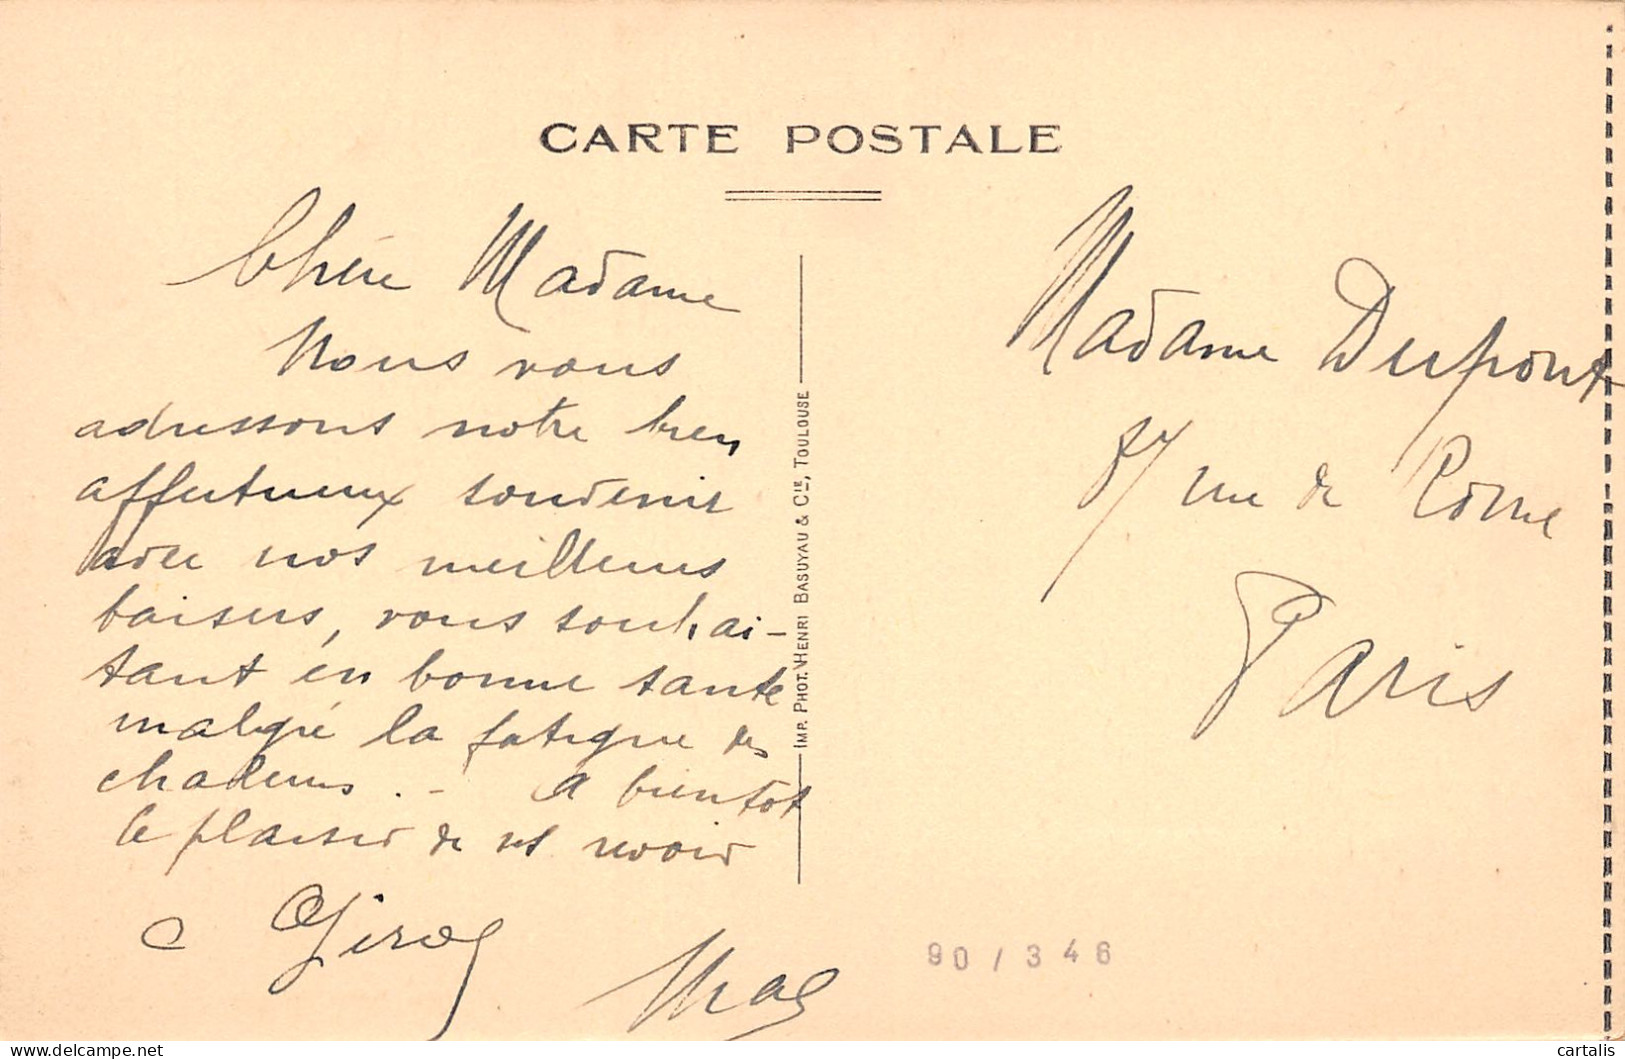 CARTE POSTALE
Chère Madame
Nous vous
adressons notre bien
affectueux souvenir
avec nos meilleurs
baisers, vous souhai-
tant en bonne santé
malgré la fatigue des
chaleurs. - A bientôt
le plaisir de vs revoir
IMP. PHOT. HENRI BASUYAU & CIE, TOULOUSE
Madame Dupont
rue de Rome
Paris
90 / 346
delcampe.net
cartalis